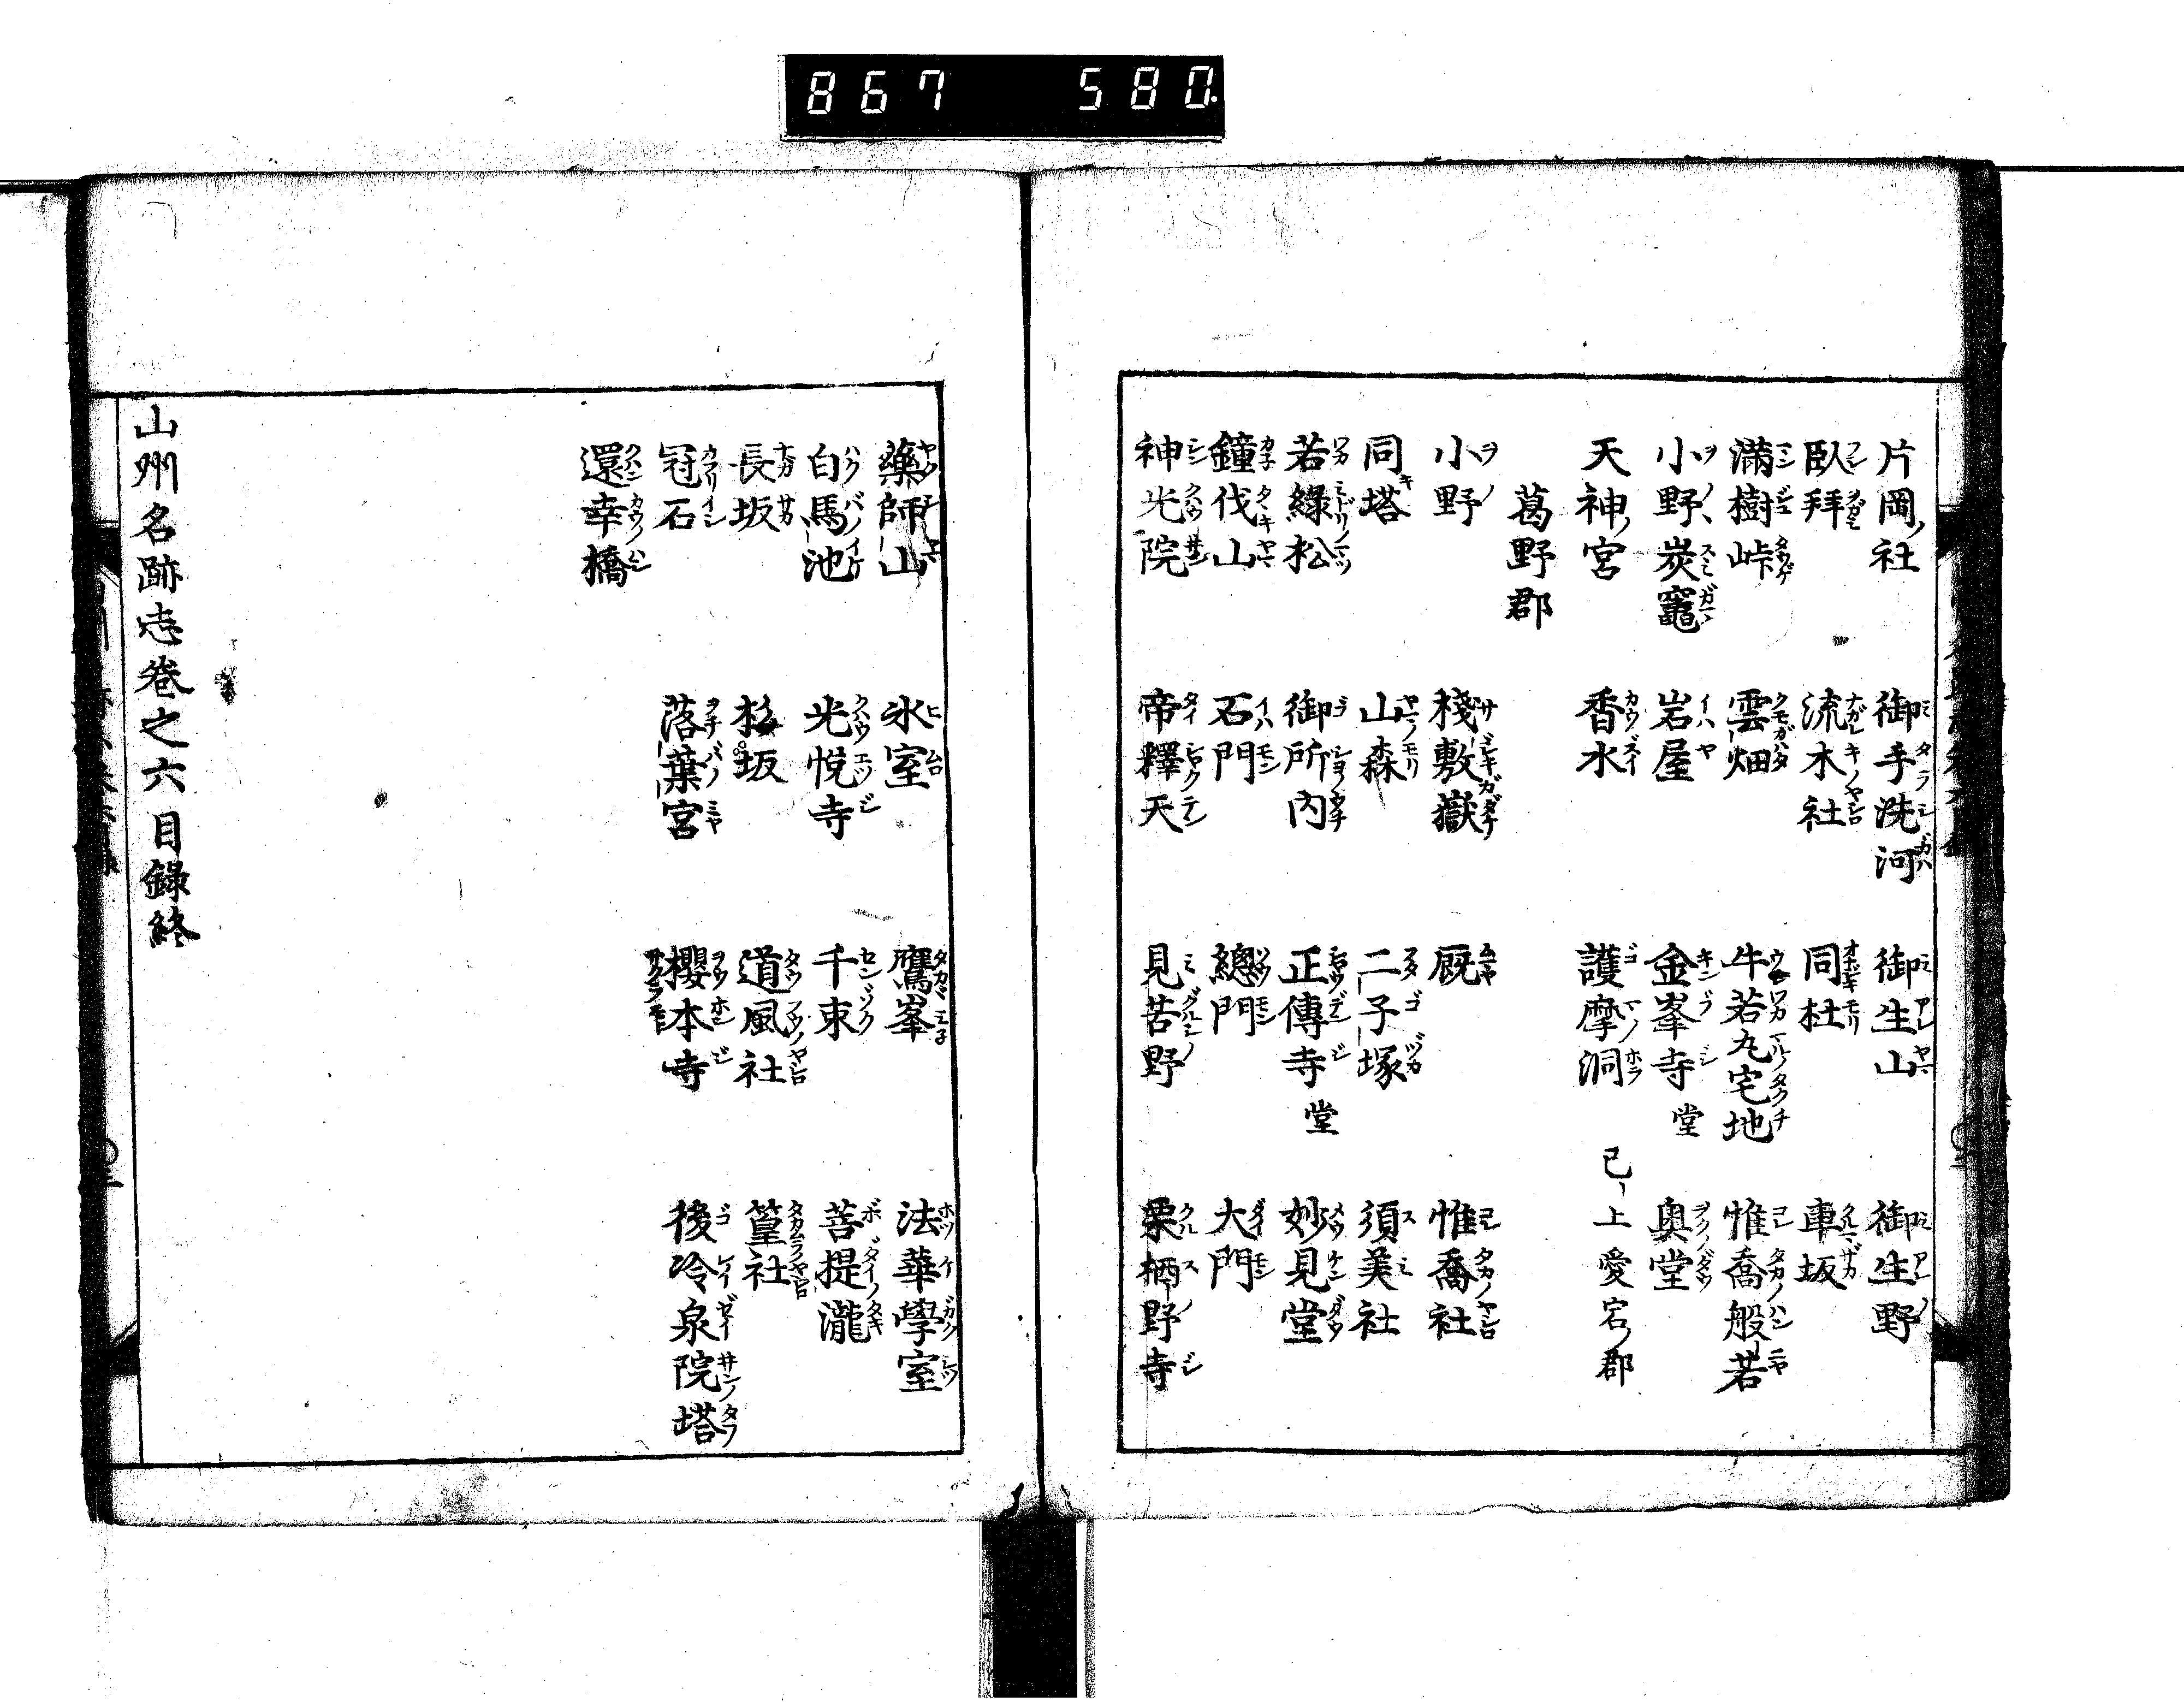 867 580
片岡ノ社 御手洗河 御生山 御生野
臥拜 流木社 同杜 車坂
滿樹峠 雲畑 牛若丸宅地 惟喬般若
小野炭竈 岩屋 金峯寺 堂 奥堂
天神ノ宮 香水 護摩洞 已上愛宕ノ郡
葛野郡
小野 棧敷嶽 厩 惟喬社
同塔 山森 二子塚 須美社
若綠松 御所内 正傳寺 堂 妙見堂
鐘伐山 石門 總門 大門
神光院 帝釋天 見苦野 栗栖野寺
藥師山 氷室 鷹峯 法華學室
白馬池 光悅寺 千束 菩提瀧
長坂 杉坂 道風社 篁社
冠石 落葉宮 櫻本寺 後冷泉院塔
還幸橋
山州名跡志卷之六目錄終